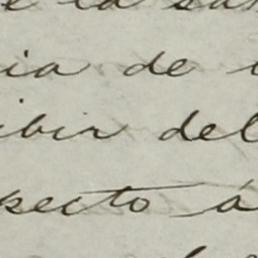 e la san
ia de
ibir del
pecto á